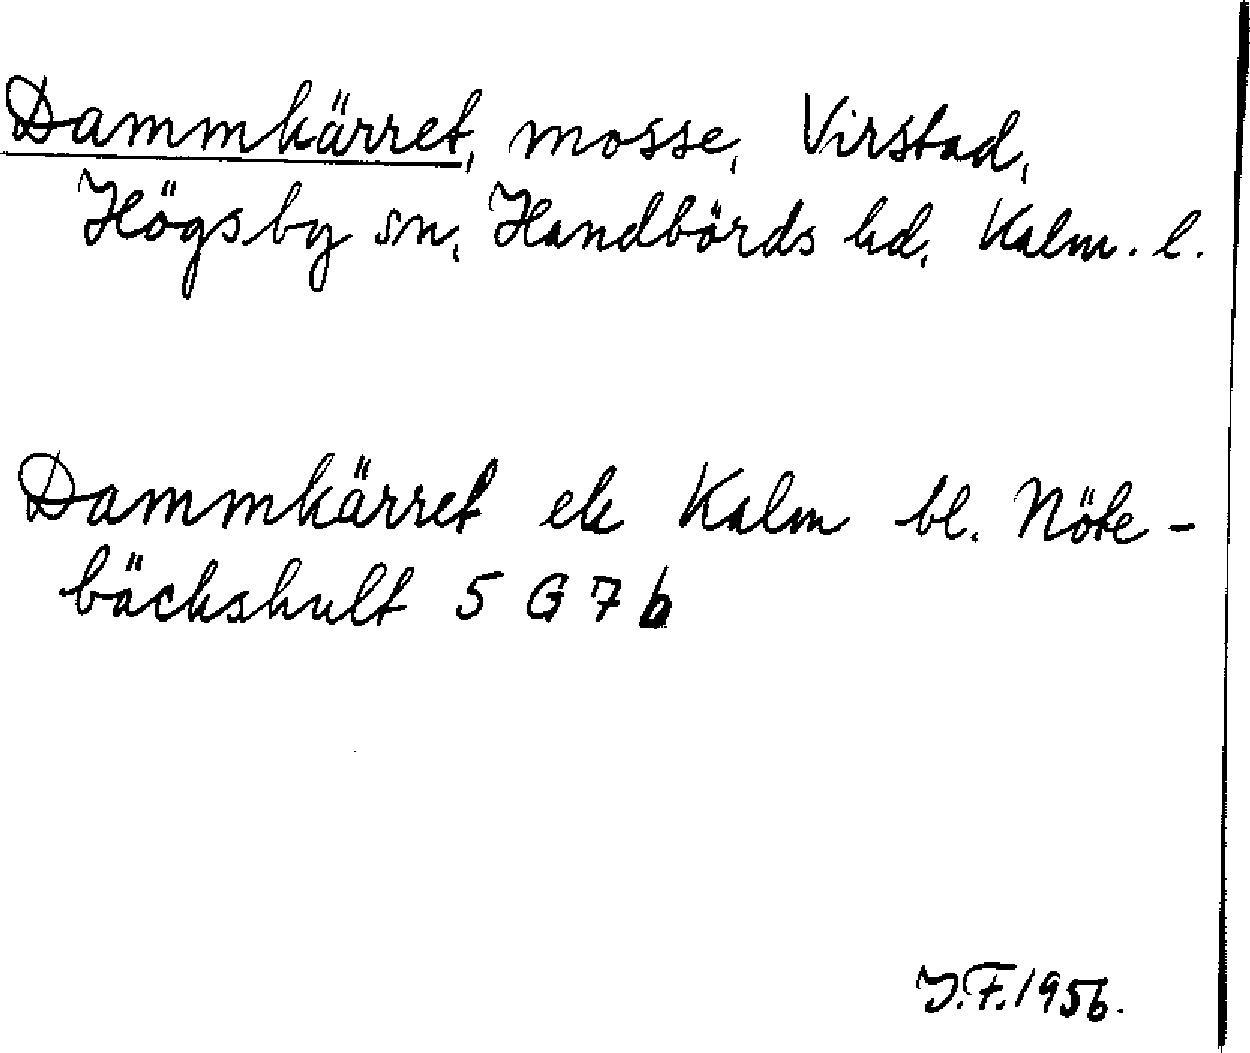 Dammkärret, mosse, Virstad,
Högsby sn, Handbörds hd, Kalm. l.
Dammkärret ek Kalm bl. Nöte-
bäckshult 5 G 7 b
J.F. 1956.